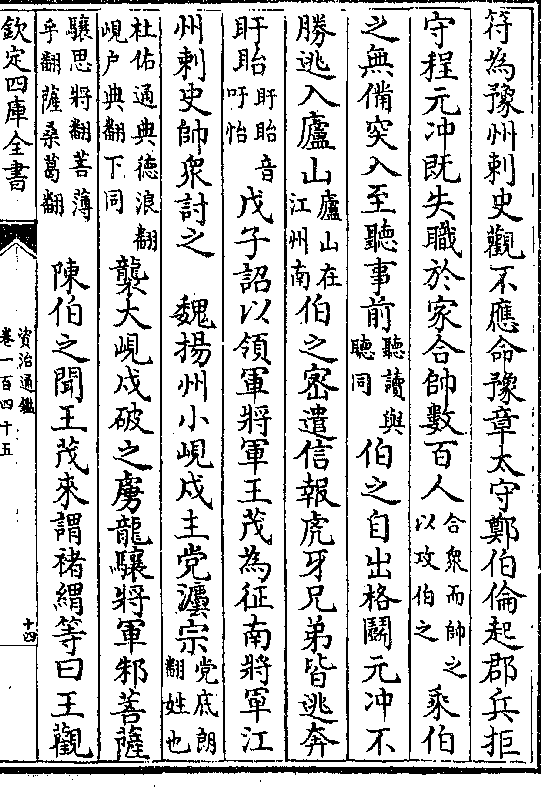 符為豫州刺史觀不應命豫章太守鄭伯倫起郡兵拒
守程元冲既失職於家合帥數百人合衆而帥之以攻伯之乘伯
之無備突入至聽事前聽讀與聽同伯之自出格鬭元冲不
勝逃入廬山廬山在江州南伯之密遣信報虎牙兄弟皆逃奔
盱眙盱眙音吁怡戊子詔以領軍將軍王茂為征南將軍江
州刺史帥衆討之 魏揚州小峴戍主党灋宗党底朗翻姓也
杜佑通典德浪翻峴户典翻下同襲大峴戍破之虜龍驤將軍邾菩薩
驤思將翻菩薄乎翻薩桑葛翻 陳伯之聞王茂來謂褚緭等曰王觀
欽定四庫全書
資治通鑑
卷一百四十五
十四